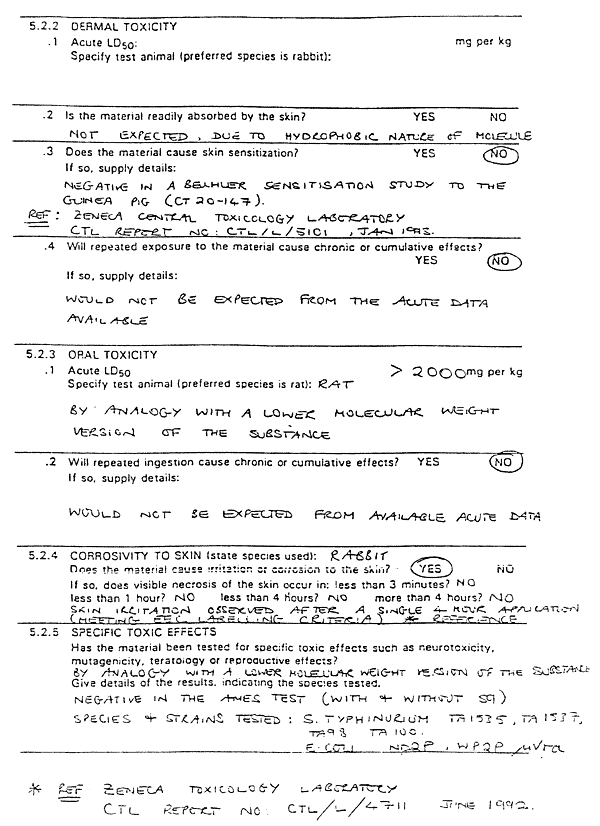 5.2.2 DERMAL TOXICITY
.1 Acute LD50: mg per kg
Specify test animal (preferred species is rabbit):
.2 Is the material readily absorbed by the skin? YES NO
NOT EXPECTED, DUE TO HYDROPHOBIC NATURE OF MOLECULE
.3 Does the material cause skin sensitization? YES NO
If so, supply details:
NEGATIVE IN A BEUHLER SENSITISATION STUDY TO THE
GUINEA PIG (CT 20-147).
REF: ZENECA CENTRAL TOXICOLOGY LABORATORY
CTL REPORT NO: CTL/L/5101, JAN 1993.
.4 Will repeated exposure to the material cause chronic or cumulative effects?
YES NO
If so, supply details:
WOULD NOT BE EXPECTED FROM THE ACUTE DATA
AVAILABLE
5.2.3 ORAL TOXICITY
.1 Acute LD50 > 2000 mg per kg
Specify test animal (preferred species is rat): RAT
BY ANALOGY WITH A LOWER MOLECULAR WEIGHT
VERSION OF THE SUBSTANCE
.2 Will repeated ingestion cause chronic or cumulative effects? YES NO
If so, supply details:
WOULD NOT BE EXPECTED FROM AVAILABLE ACUTE DATA
5.2.4 CORROSIVITY TO SKIN (state species used): RABBIT
Does the material cause irritation or corrosion to the skin? YES NO
If so, does visible necrosis of the skin occur in: less than 3 minutes? NO
less than 1 hour? NO less than 4 hours? NO more than 4 hours? NO
SKIN IRRITATION OBSERVED AFTER A SINGLE 4 HOUR APPLICATION
(MEETING EEC LABELLING CRITERIA) * REFERENCE
5.2.5 SPECIFIC TOXIC EFFECTS
Has the material been tested for specific toxic effects such as neurotoxicity,
mutagenicity, teratology or reproductive effects?
BY ANALOGY WITH A LOWER MOLECULAR WEIGHT VERSION OF THE SUBSTANCE
Give details of the results, indicating the species tested.
NEGATIVE IN THE AMES TEST (WITH + WITHOUT S9)
SPECIES + STRAINS TESTED: S. TYPHINURIUM TA1535, TA1537,
TA98 TA100.
E. COLI WP2P uvra
* REF ZENECA TOXICOLOGY LABORATORY
CTL REPORT NO: CTL/L/4711 JUNE 1992.